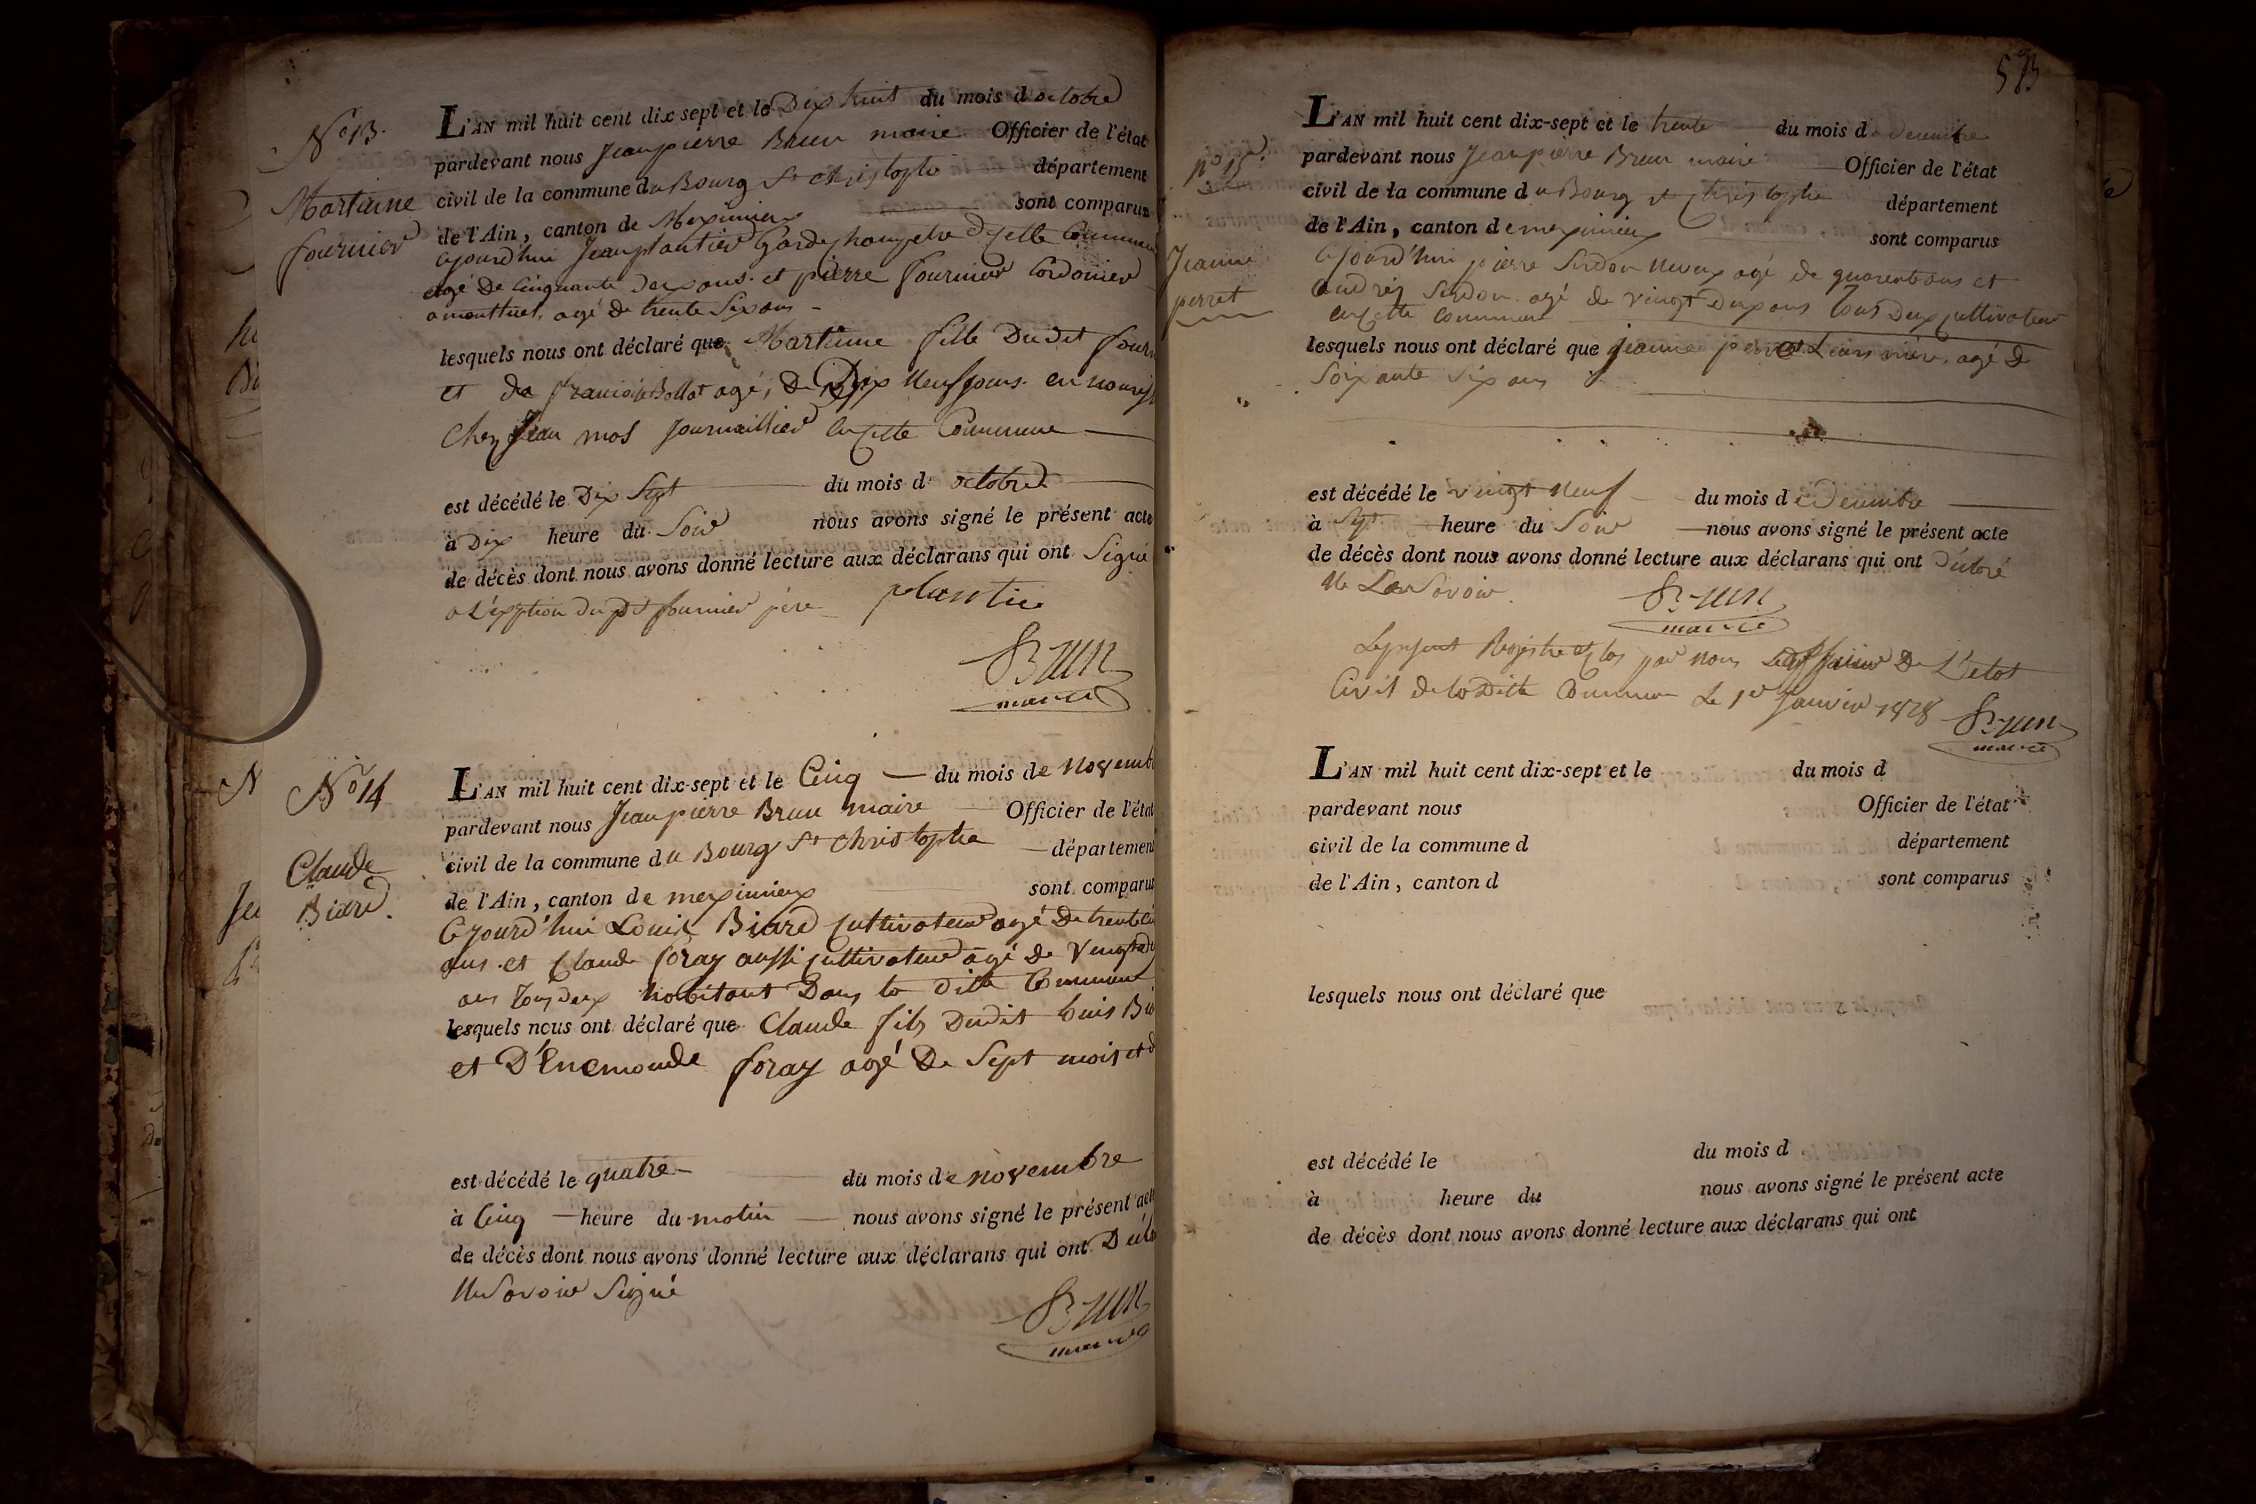 N° 13.
Martinne
fournier
L'AN mil huit cent dix sept et le Dix huit du mois d octobre
pardevant nous Jean pierre Brun maire Officier de l'état
civil de la commune du Bourg St Christophe département
de l'Ain, canton de Meximieux sont comparus
cejourd'hui Jean plantier Garde champetre de cette Commune
agé de Cinquante deux ans et pierre fournier Cordonier
a montluel, agé de trente Six ans
lesquels nous ont déclaré que Martinne fille Dudit fourn
et de francoise Bollot agé, de Dix Neuf jours en nouris
Chez Jean mos Journaillier en cette Commune
est décédé le Dix Sept du mois d' octobre
à Dix heure du Soir nous avons signé le présent acte
de décès dont nous avons donné lecture aux déclarans qui ont Signé
a l'exption du dt fournier pere plantier
Brun
maire
N° 14
Claude
Biard.
L'AN mil huit cent dix-sept et le Cinq du mois de Novemb
pardevant nous Jean pierre Brun maire Officier de l'état
civil de la commune du Bourg St Christophe département
de l'Ain, canton de meximieux sont comparus
Cejourd'hui Louis Biard cultivateur agé de trente
ans et Claude foray aussi cultivateur agé de Vingt
ans tous deux habitant Dans la ditte Commune
lesquels nous ont déclaré que Claude fils Dudit Louis Bi
et D'Enemonde foray agé De Sept mois et d
est décédé le quatre du mois de novembre
à Cinq heure du matin nous avons signé le présent acte
de décès dont nous avons donné lecture aux déclarans qui ont Déclar
Ne Savoir Signé
Brun
maire
573
n° 15.
Jeanne
perret
L'AN mil huit cent dix-sept et le trente du mois de Decembre
pardevant nous Jean pierre Brun maire Officier de l'état
civil de la commune du Bourg st Christophe département
de l'Ain, canton de meximieux sont comparus
Cejourd'hui pierre Serdon Neveux agé de quarente ans et
andréz Serdon agé de vingt Deux ans tous Deux cultivateur
en cette Commune
lesquels nous ont déclaré que Jeanne perret Leur mère, agé de
Soixante Six ans
est décédé le vingt Neuf du mois de Decembre
à Sept heure du Soir nous avons signé le présent acte
de décès dont nous avons donné lecture aux déclarans qui ont Déclaré
Ne Le Savoir
Brun
maire
Le present Registre Clos par nous officier De L'etat
Civil de la Ditte Commune Le 1er Janvier 1818
Brun
maire
L'AN mil huit cent dix-sept et le du mois d
pardevant nous Officier de l'état
civil de la commune d département
de l'Ain, canton d sont comparus
lesquels nous ont déclaré que
est décédé le du mois d
à heure du nous avons signé le présent acte
de décès dont nous avons donné lecture aux déclarans qui ont